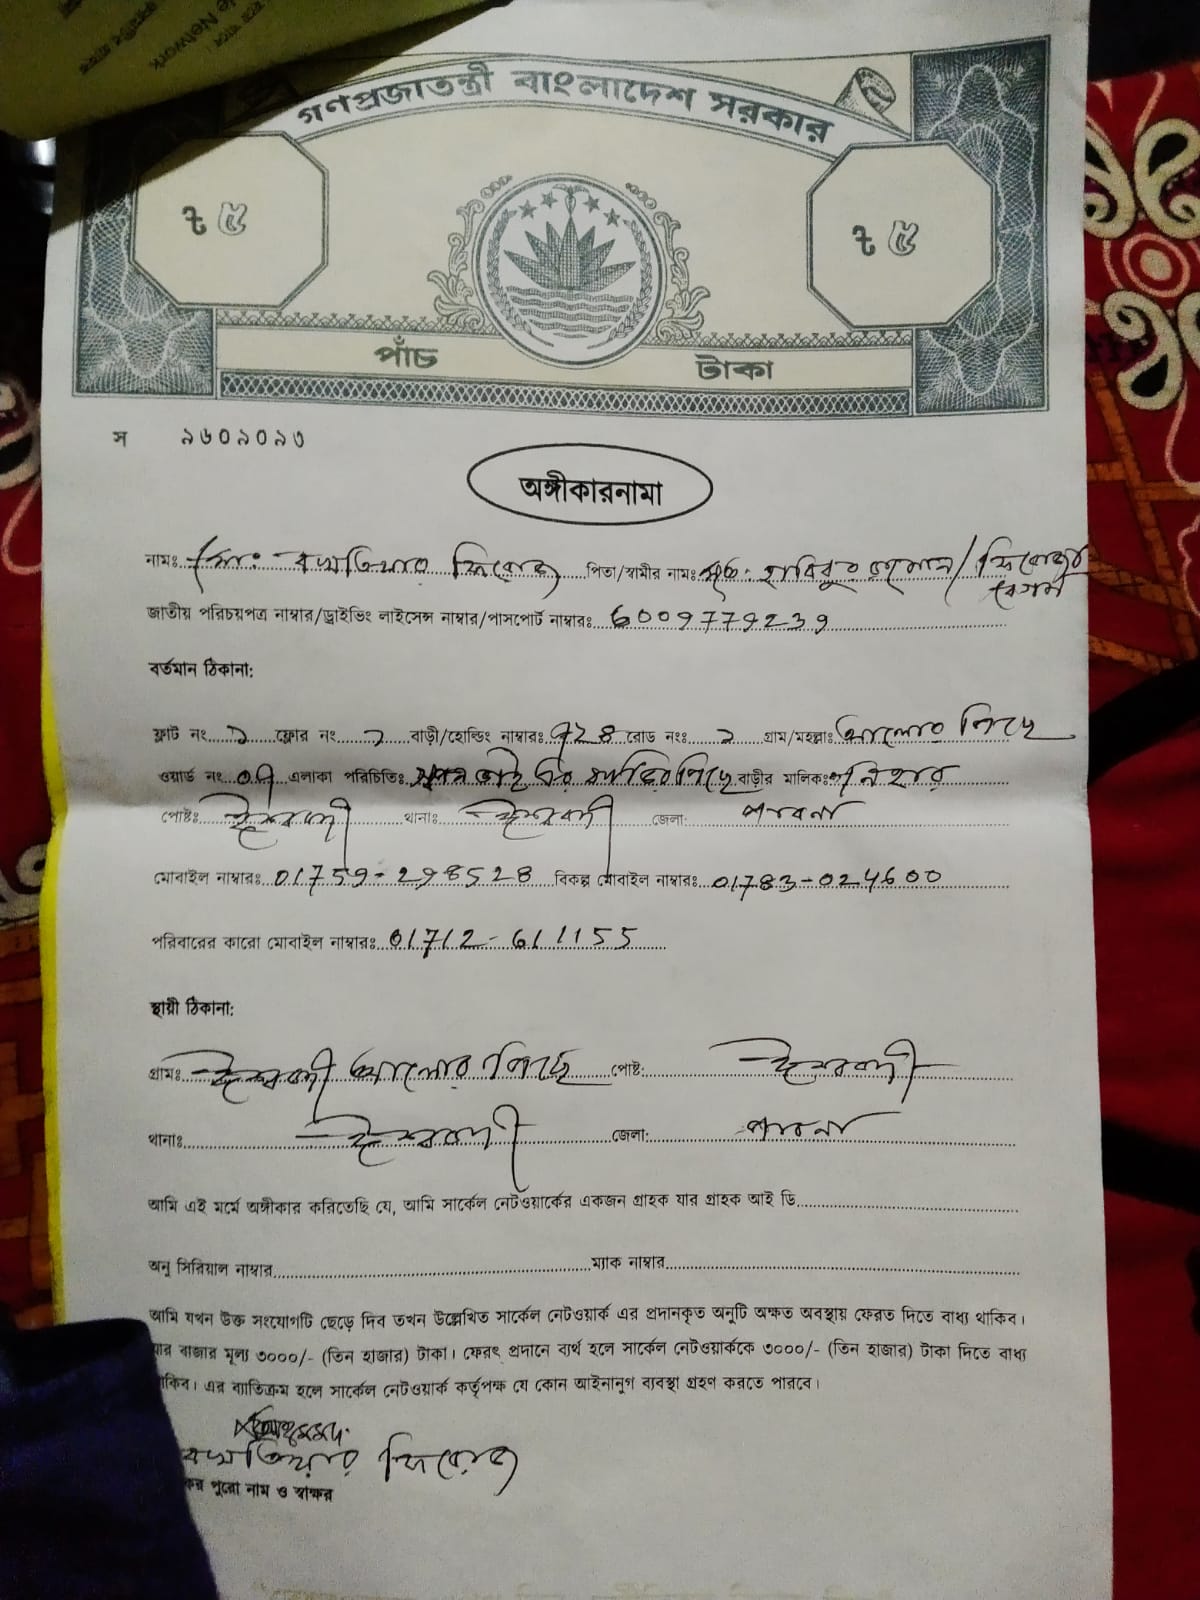 গণপ্রজাতন্ত্রী বাংলাদেশ সরকার
ট ৫
ট ৫
পাঁচ টাকা
স ৯৬০৯০৯৩
অঙ্গীকারনামা
নামঃ মোঃ বখতিয়ার ফিরোজ পিতা/স্বামীর নামঃ মৃত: হাবিবুর রহমান/ফিরোজা
বেগম
জাতীয় পরিচয়পত্র নাম্বার/ড্রাইভিং লাইসেন্স নাম্বার/পাসপোর্ট নাম্বারঃ 6009779239
বর্তমান ঠিকানা:
ফ্লাট নং ১ ফ্লোর নং ১ বাড়ী/হোল্ডিং নাম্বারঃ 728 রোড নংঃ ১ গ্রাম/মহল্লাঃ আলোর দিশে
ওয়ার্ড নং ০৭ এলাকা পরিচিতিঃ বাড়ীর মালিকঃ
পোষ্টঃ ঈশ্বরদী থানাঃ ঈশ্বরদী জেলা: পাবনা
মোবাইল নাম্বারঃ 01759-298528 বিকল্প মোবাইল নাম্বারঃ 01783-024600
পরিবারের কারো মোবাইল নাম্বারঃ 01712-611155
স্থায়ী ঠিকানা:
গ্রামঃ ঈশ্বরদী আলোর দিশে পোষ্ট: ঈশ্বরদী
থানাঃ ঈশ্বরদী জেলা: পাবনা
আমি এই মর্মে অঙ্গীকার করিতেছি যে, আমি সার্কেল নেটওয়ার্কের একজন গ্রাহক যার গ্রাহক আই ডি
অনু সিরিয়াল নাম্বার ম্যাক নাম্বার
আমি যখন উক্ত সংযোগটি ছেড়ে দিব তখন উল্লেখিত সার্কেল নেটওয়ার্ক এর প্রদানকৃত অনুটি অক্ষত অবস্থায় ফেরত দিতে বাধ্য থাকিব।
যার বাজার মূল্য ৩০০০/- (তিন হাজার) টাকা। ফেরৎ প্রদানে ব্যর্থ হলে সার্কেল নেটওয়ার্ককে ৩০০০/- (তিন হাজার) টাকা দিতে বাধ্য
থাকিব। এর ব্যতিক্রম হলে সার্কেল নেটওয়ার্ক কর্তৃপক্ষ যে কোন আইনানুগ ব্যবস্থা গ্রহণ করতে পারবে।
বখতিয়ার ফিরোজ
পুরো নাম ও স্বাক্ষর